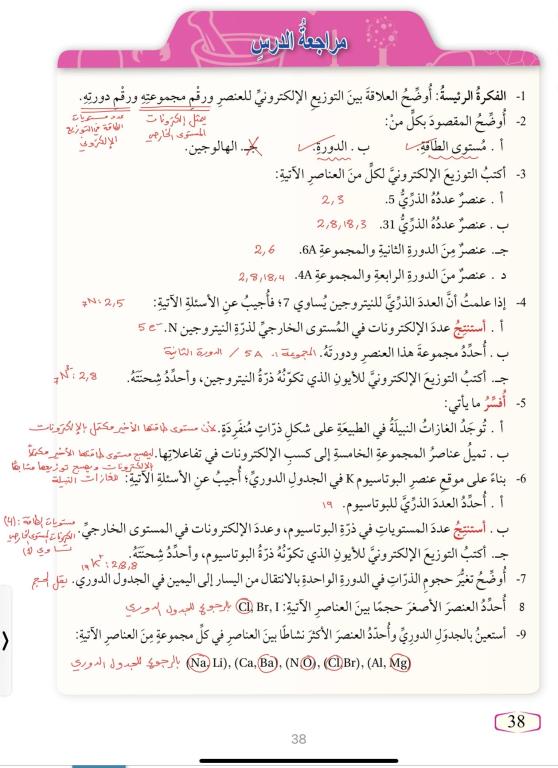 مراجعةُ الدرسِ
1- الفكرةُ الرئيسةُ: أُوضِّحُ العلاقةَ بينَ التوزيعِ الإلكترونيِّ للعنصرِ ورقْمِ مجموعتِهِ ورقْمِ دورتِهِ.
يمثل إلكترونات المستوى الخارجي
عدد مستويات الطاقة في التوزيع الإلكتروني
2- أُوضِّحُ المقصودَ بكلٍّ منْ:
أ . مُستوى الطاقةِ. ب . الدورةِ. جـ. الهالوجين.
3- أكتبُ التوزيعَ الإلكترونيَّ لكلٍّ منَ العناصرِ الآتيةِ:
أ . عنصرٌ عددُهُ الذرِّيُّ 5. 2,3
ب . عنصرٌ عددُهُ الذرِّيُّ 31. 2,8,18,3
جـ. عنصرٌ مِنَ الدورةِ الثانيةِ والمجموعةِ 6A. 2,6
د . عنصرٌ منَ الدورةِ الرابعةِ والمجموعةِ 4A. 2,8,18,4
4- إذا علمتُ أنَّ العددَ الذرِّيَّ للنيتروجينِ يُساوي 7؛ فأُجيبُ عنِ الأسئلةِ الآتيةِ: 7N: 2,5
أ . أستنتِجُ عددَ الإلكترونات في المُستوى الخارجيِّ لذرّةِ النيتروجين N. 5e-
ب . أُحدِّدُ مجموعةَ هذا العنصرِ ودورتَهُ. المجموعة: 5A / الدورة الثانية
جـ. أكتبُ التوزيعَ الإلكترونيَّ للأيونِ الذي تكوّنُهُ ذرّةُ النيتروجين، وأُحدِّدُ شِحنَتَهُ. 7N3-: 2,8
5- أُفسِّرُ ما يأتي:
أ . تُوجَدُ الغازاتُ النبيلَةُ في الطبيعَةِ على شكلِ ذرّاتٍ مُنفَرِدَةٍ. لأن مستوى طاقتها الأخير مكتمل بالإلكترونات
ب . تميلُ عناصرُ المجموعةِ الخامسةِ إلى كسبِ الإلكترونات في تفاعلاتِها. ليصبح مستوى طاقتها الأخير مكتملاً
بالإلكترونات ويصبح توزيعها مشابهًا
للغازات النبيلة
6- بناءً على موقعِ عنصرِ البوتاسيوم K في الجدولِ الدوريِّ؛ أُجيبُ عنِ الأسئلةِ الآتيةِ:
أ . أُحدِّدُ العددَ الذرِّيَّ للبوتاسيوم. 19
ب . أستنتِجُ عددَ المستوياتِ في ذرّةِ البوتاسيوم، وعددَ الإلكترونات في المستوى الخارجيِّ.
مستويات الطاقة: (4)
إلكترونات المستوى الخارجي
تساوي (1)
جـ. أكتبُ التوزيعَ الإلكترونيَّ للأيونِ الذي تكوّنُهُ ذرّةُ البوتاسيوم، وأُحدِّدُ شِحنَتَهُ.
19K+: 2,8,8
7- أُوضِّحُ تغيُّرَ حجومِ الذرّاتِ في الدورةِ الواحدةِ بالانتقالِ من اليسارِ إلى اليمينِ في الجدولِ الدوري. يقل الحجم
8 أُحدِّدُ العنصرَ الأصغرَ حجمًا بينَ العناصرِ الآتيةِ: Cl, Br, I بالرجوع للجدول الدوري
9- أستعينُ بالجدوَلِ الدوريِّ وأُحدِّدُ العنصرَ الأكثرَ نشاطًا بينَ العناصرِ في كلِّ مجموعةٍ مِنَ العناصرِ الآتيةِ:
(Na, Li), (Ca, Ba), (N, O), (Cl, Br), (Al, Mg) بالرجوع للجدول الدوري
38
38